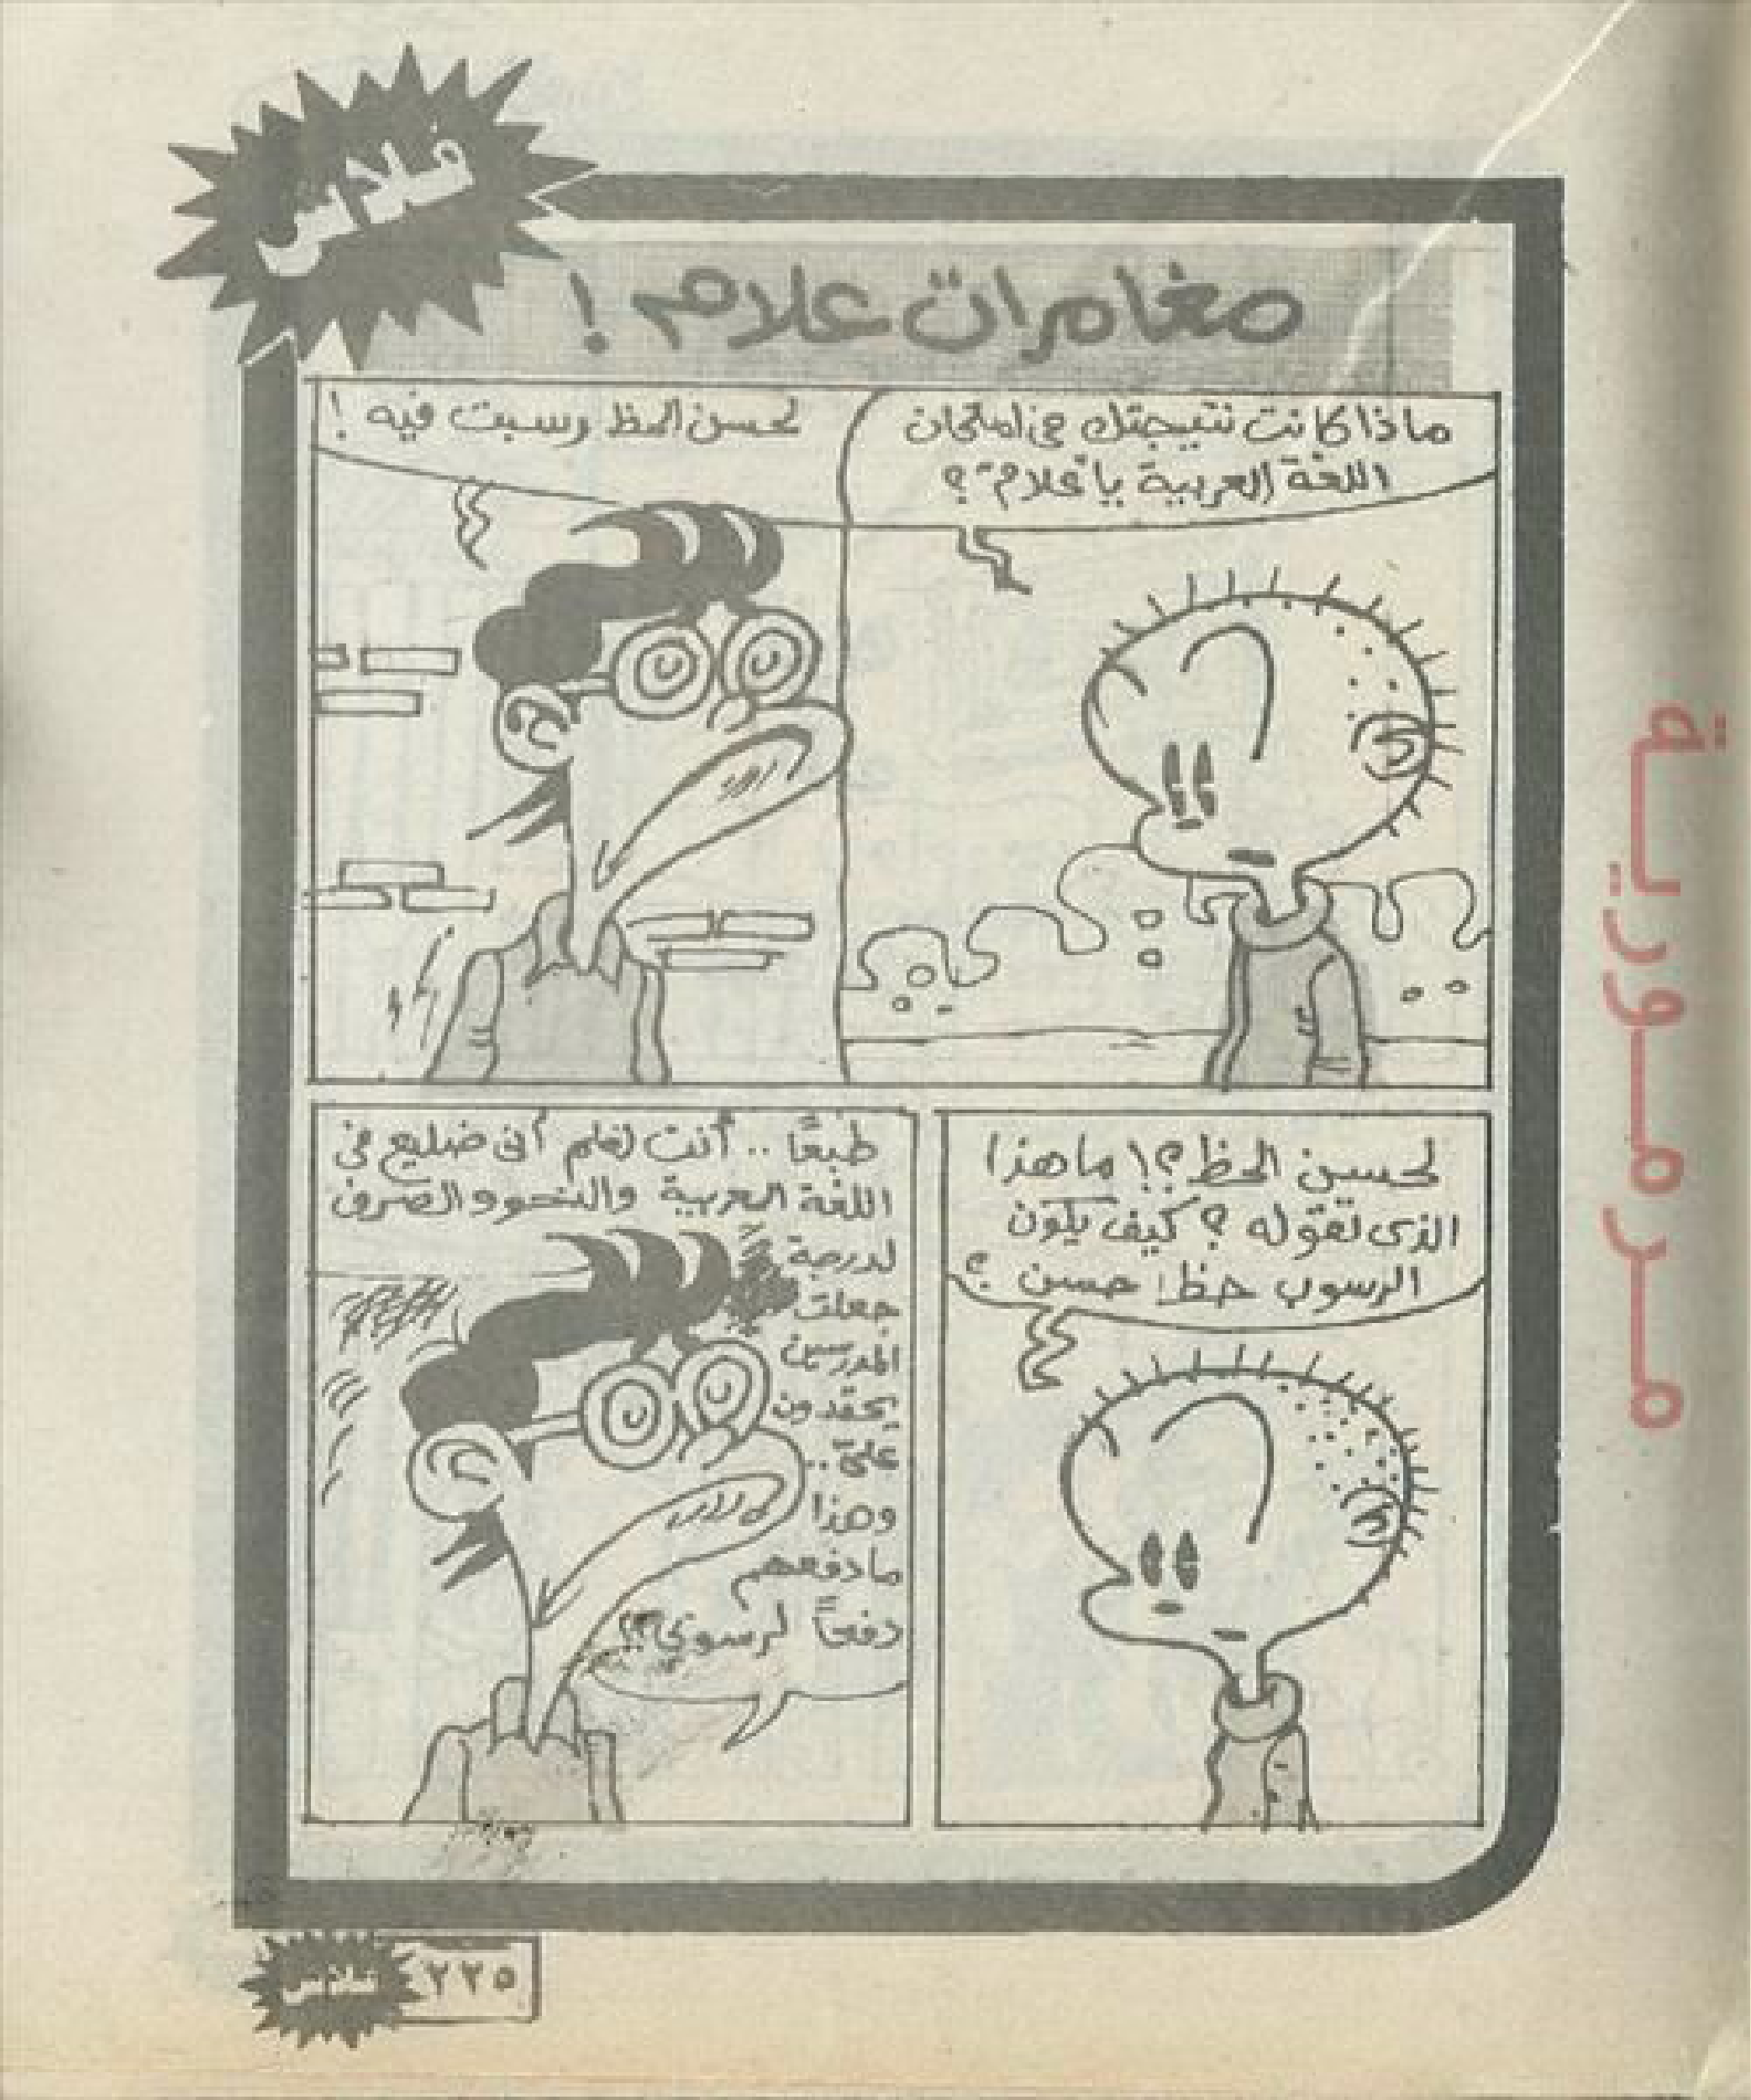 فلاش
مغامرات علام !
ماذا كانت نتيجتك فى امتحان
اللغة العربية يا "علام"؟
لحسن الحظ رسبت فيه !
لحسن الحظ؟! ما هذا
الذى تقوله ؟ كيف يكون
الرسوب حظا حسن ؟
طبعًا .. أنت تعلم أنى ضليع فى
اللغة العربية والنحو والصرف
لدرجة
جعلت
المدرسين
يحقدون
علىّ ..
وهذا
ما دفعهم
دفعاً لرسوبى؟!
٢٢٥
فلاش
مرمورية